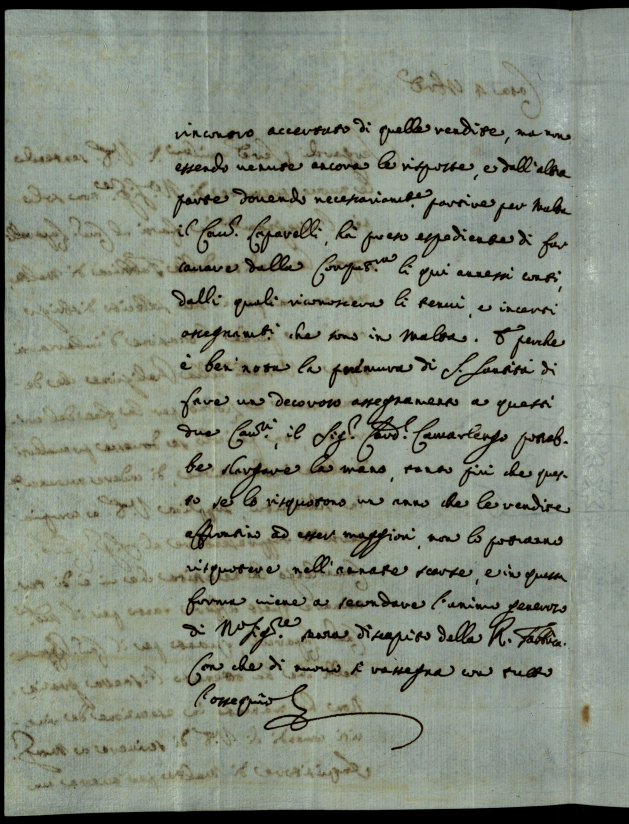 rincontro accertato di quelle rendite, ma non
essendo venute ancora le risposte, e dall'altra
parte dovendo necessariam.te partire per Malta
il Cav.r Caparelli, hà preso espediente di far
cavare dalla Comput.ria li qui annessi conti,
dalli quali riconoscerà li tenui, e incerti
assegnam.ti che sono in Malta. E perche
è ben nota la premura di S. Santità di
fare un decoroso assegnamento a questi
due Cav.ri, il Sig.r Card.l Camarlengo potreb-
be slargare la mano, tanto più che ques-
to se lo risquotono un anno che le rendite
ad esser maggiori, non lo potranno
risquotere nell'annate scarse, e in questa
forma viene a secondare l'animo generoso
di N.ro Sig.re senza discapito della R. Fabbrica.
Con che di nuovo si rassegna con tutto
l'ossequio